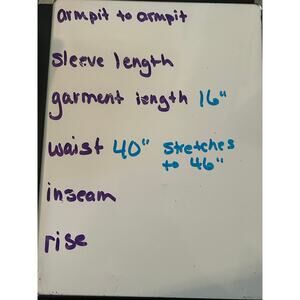 armpit to armpit
sleeve length
garment length 16"
waist 40" stretches
to 46"
inseam
rise